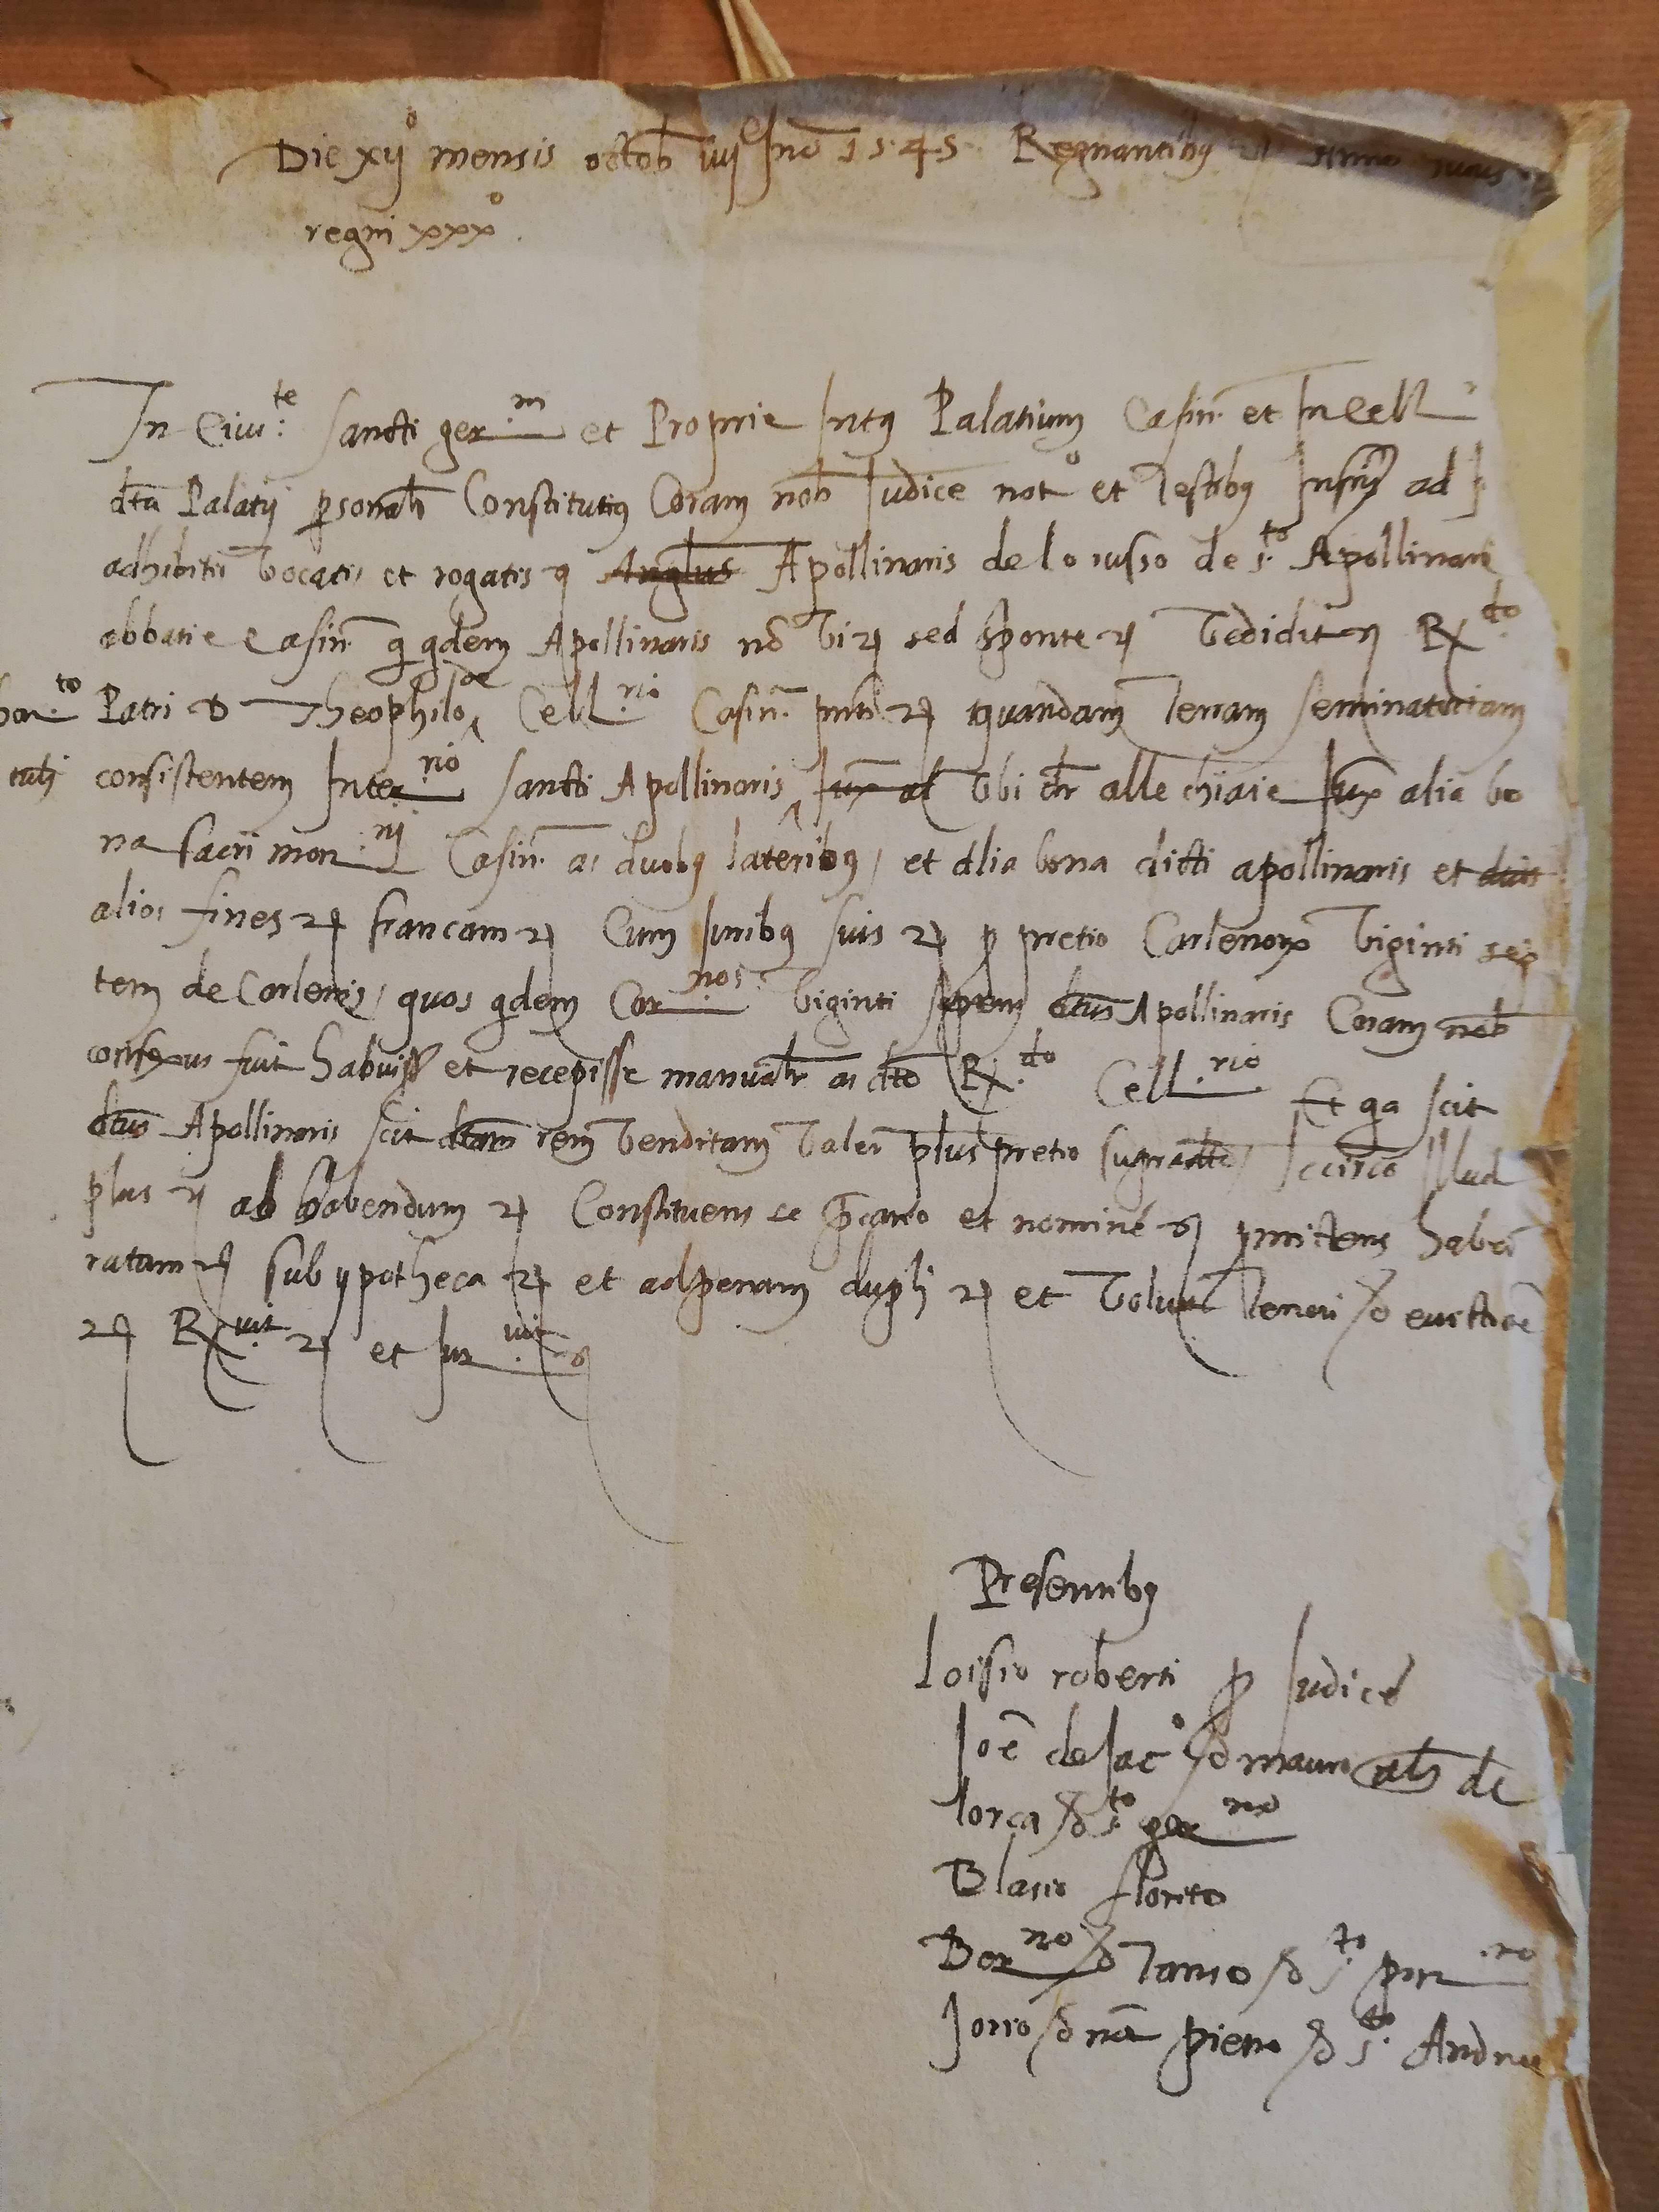 Die xij° mensis octob iiij^e Ind 1545 Regnantibus
regni xxx°.
In Ciui^te Sancti ger^m et Proprie Intus Palatium Casin. et In Cell
dta Palatij psonalr Constitutus Coram nob Iudice not° et Testibus ad
adhibitis Vocatis et rogatis q Anglus Apollinaris de lo iusso de s^to Apollinare
abbatie Casin. q qdem Apollinaris nō Vi ꝛc sed sponte ꝛc Vēdidit ꝛc R^do
Patri D Theophilo de Cell^rio Casin. pnti ꝛc quandam Terram seminatoriam
consistentem In ter^rio Sancti Apollinaris Iux al Vbi dr alle chiaie Iux alia bo
na sacri mon^nj Casin. a duobus lateribus, et alia bona dicti apollinaris et
alios fines ꝛc francam ꝛc Cum Iuribus suis ꝛc p pretio Carlenorū Viginti sep
tem de Carlenis, quos qdem Car^nos Viginti septem dtus Apollinaris Coram nob
confexus fuit habuisse et recepisse manualr a dto R^do Cell^rio Et qa scit
dtus Apollinaris scit dtam rem Venditam Valer plus pretio supradto, Iccirco Illud
plus ꝛc ab habendum ꝛc Constituens se pcario et nomine ꝛc pmittens haberē
ratam ꝛc sub ypotheca ꝛc et ad penam dupli ꝛc et Voluit Teneri de euictione
ꝛc R^uit ꝛc et Iur^uit ꝛc
Presentibus
loisio roberti p Iudice
Ioē de Iac° de mauro als de
lorca de s^to ger^no
Blasio florito
Ber^no de Tanso de s^to
Iorio de pietro de s^to Andrea